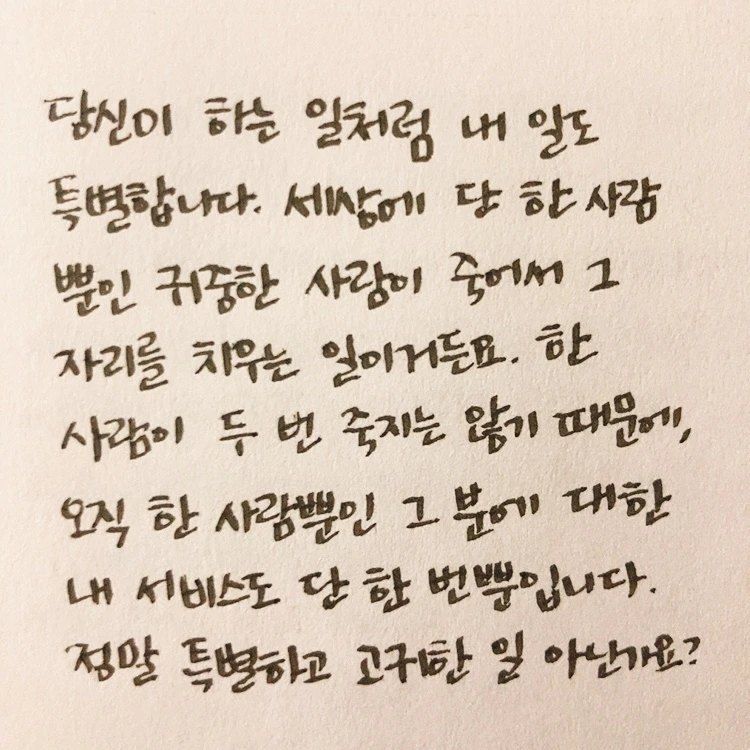 당신이 하는 일처럼 내 일도
특별합니다. 세상에 단 한 사람
뿐인 귀중한 사람이 죽어서 그
자리를 치우는 일이거든요. 한
사람이 두 번 죽지는 않기 때문에,
오직 한 사람뿐인 그 분에 대한
내 서비스도 단 한 번뿐입니다.
정말 특별하고 고귀한 일 아닌가요?